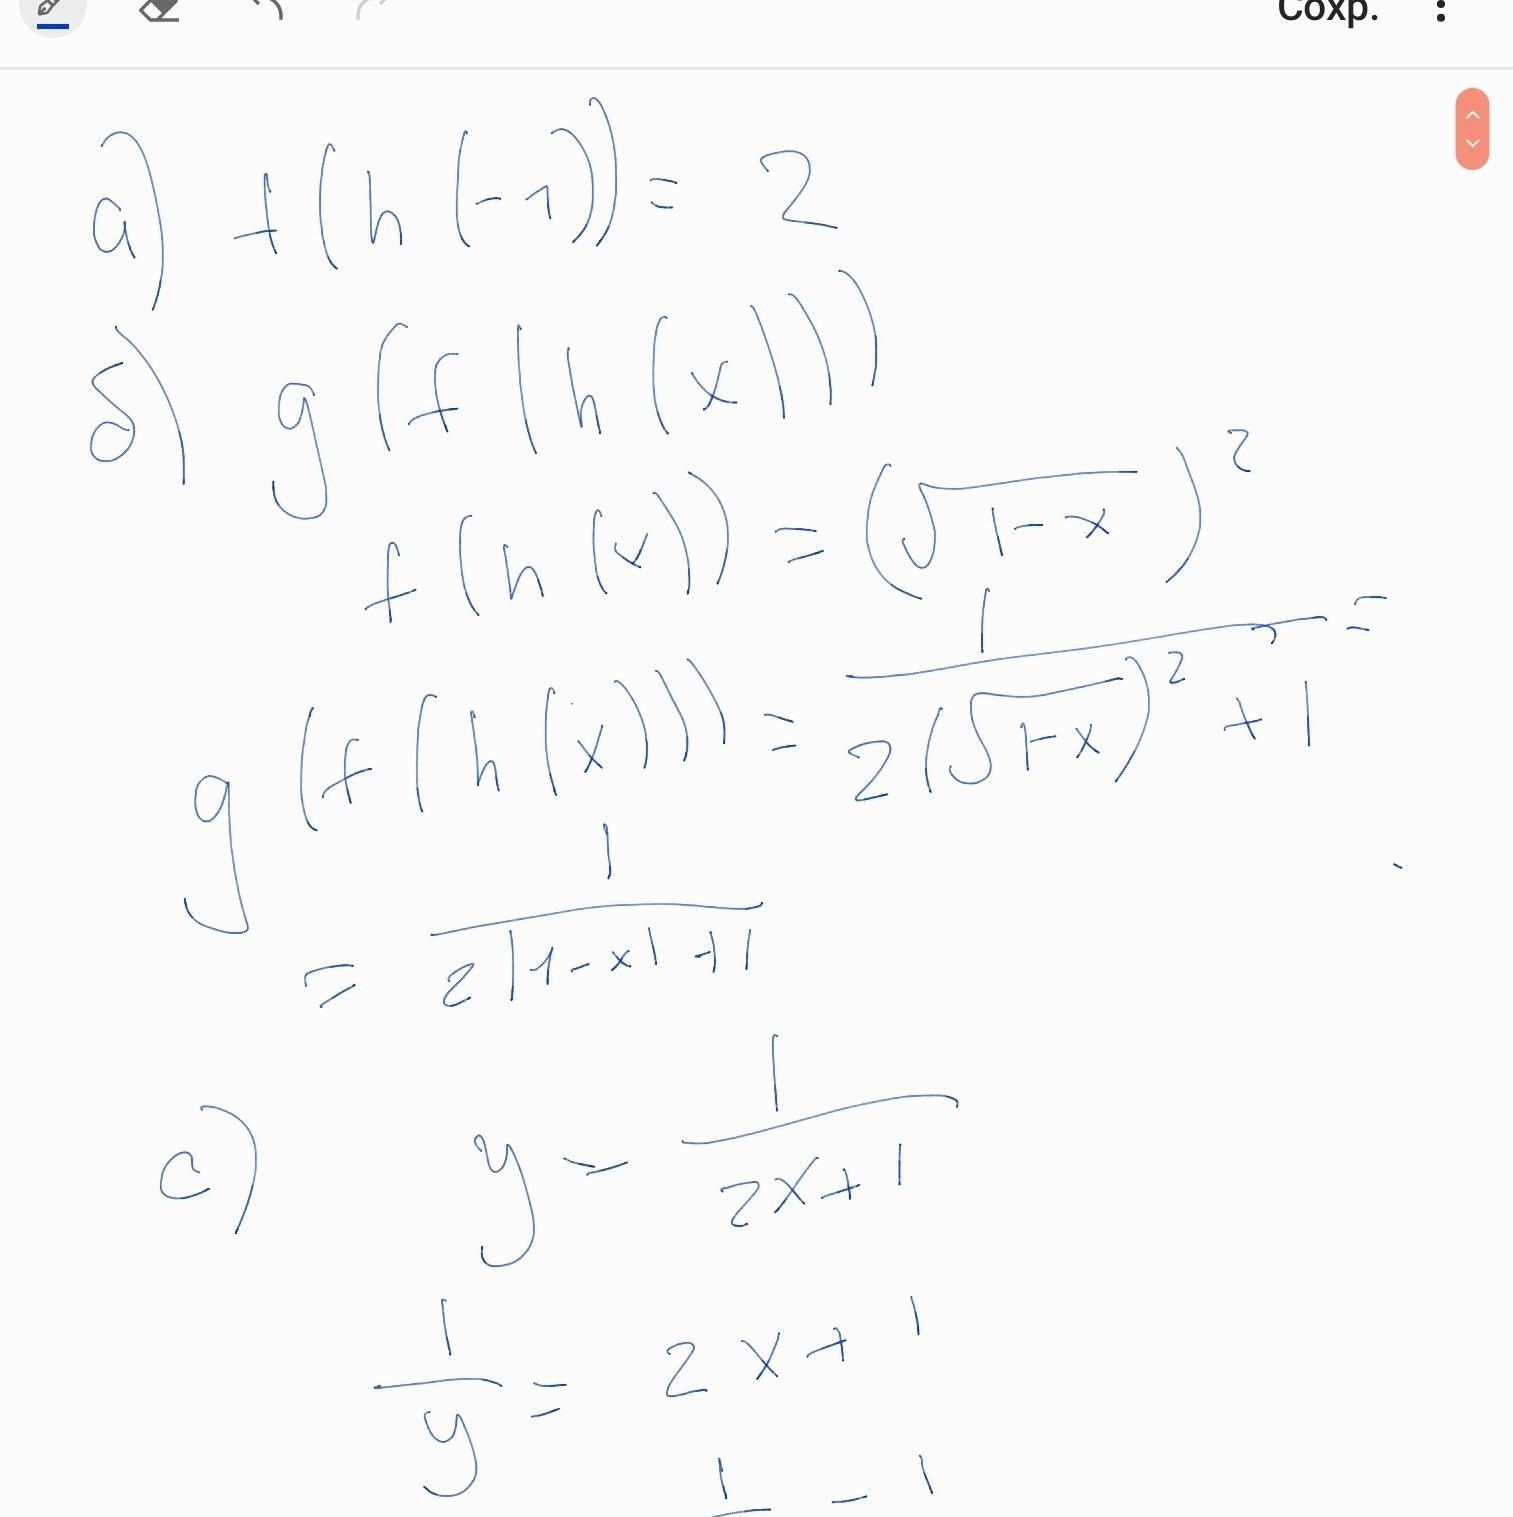 Сохр.
а) f(h(-1)) = 2
б) g(f(h(x)))
f(h(x)) = (√(1-x))²
g(f(h(x))) = 1/(2(√(1-x))² + 1) =
= 1/(2|1-x| + 1)
c) y = 1/(2x+1)
1/y = 2x + 1
1 - 1